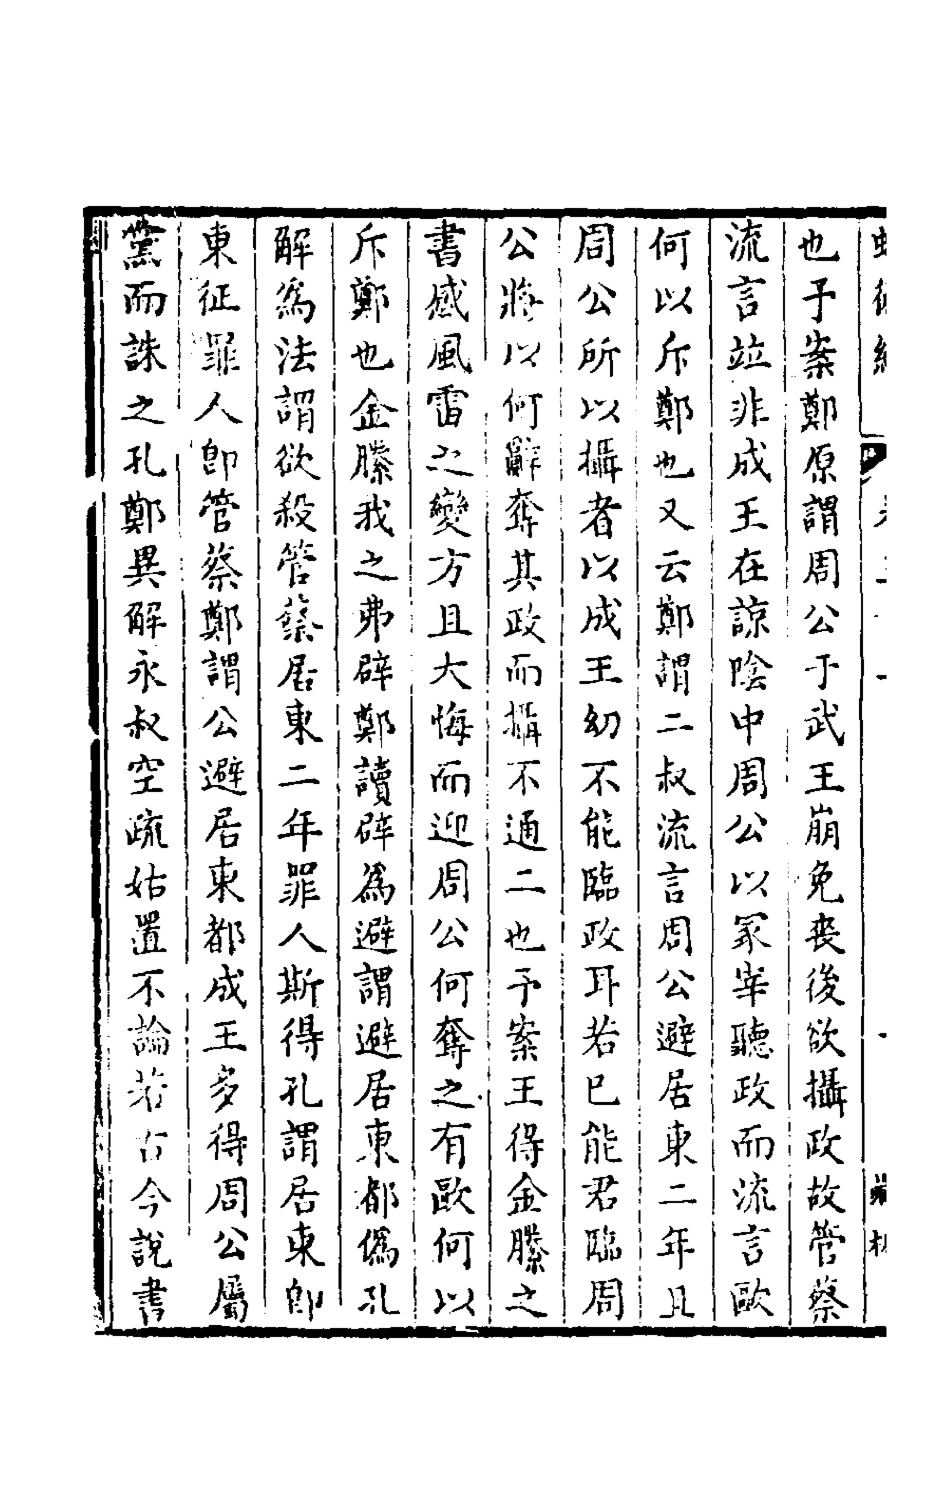 也予案鄭原謂周公于武王崩免喪後欲攝政故管蔡
流言竝非成王在諒陰中周公以冢宰聽政而流言歐
何以斥鄭也又云鄭謂二叔流言周公避居東二年且
周公所以攝者以成王幼不能臨政耳若已能君臨周
公將以何辭奪其政而攝不通二也予案王得金縢之
書感風雷之變方且大悔而迎周公何奪之有歐何以
斥鄭也金縢我之弗辟鄭讀辟為避謂避居東都僞孔
解為法謂欲殺管蔡居東二年罪人斯得孔謂居東即
東征罪人即管蔡鄭謂公避居東都成王多得周公屬
黨而誅之孔鄭異解永叔空疏姑置不論若古今說書